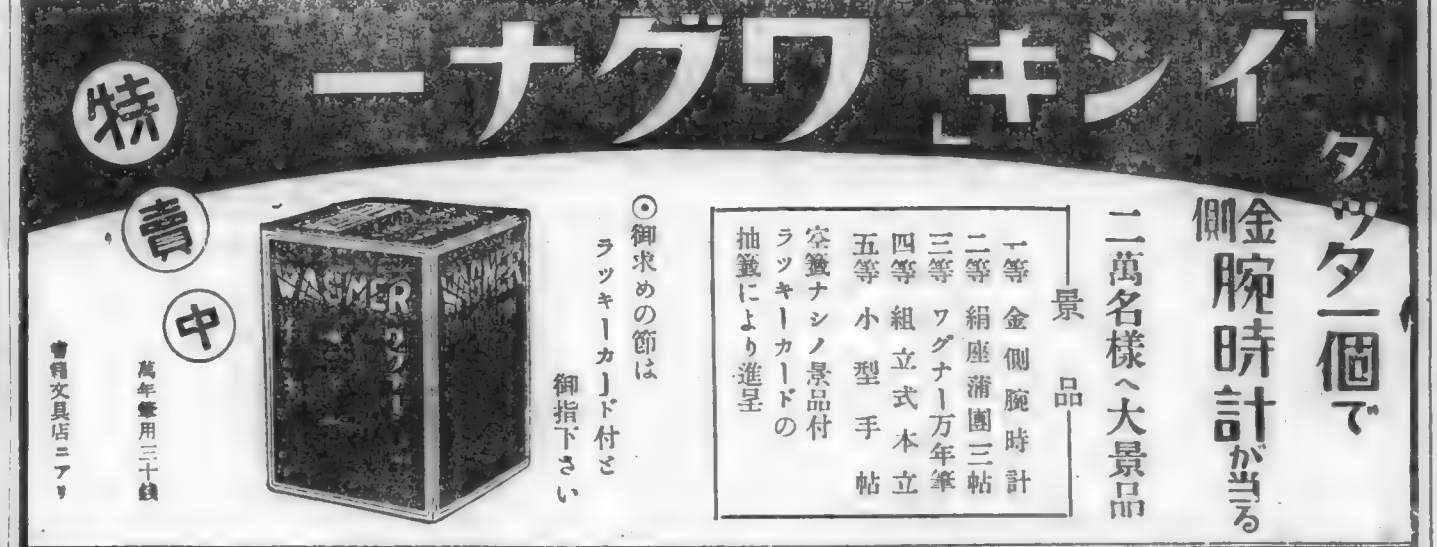 「インキ」ワグナー
タッタ一個で
金側腕時計が当る
二萬名様へ大景品
景品
一等 金側腕時計
二等 絹座蒲團三帖
三等 ワグナー万年筆
四等 組立式本立
五等 小型手帖
空籤ナシノ景品付
ラッキーカードの
抽籤により進呈
⦿御求めの節は
ラッキーカード付と
御指下さい
WAGNER
ワグナー
WAGNER
特賣中
萬年筆用三十錢
書籍文具店ニアリ